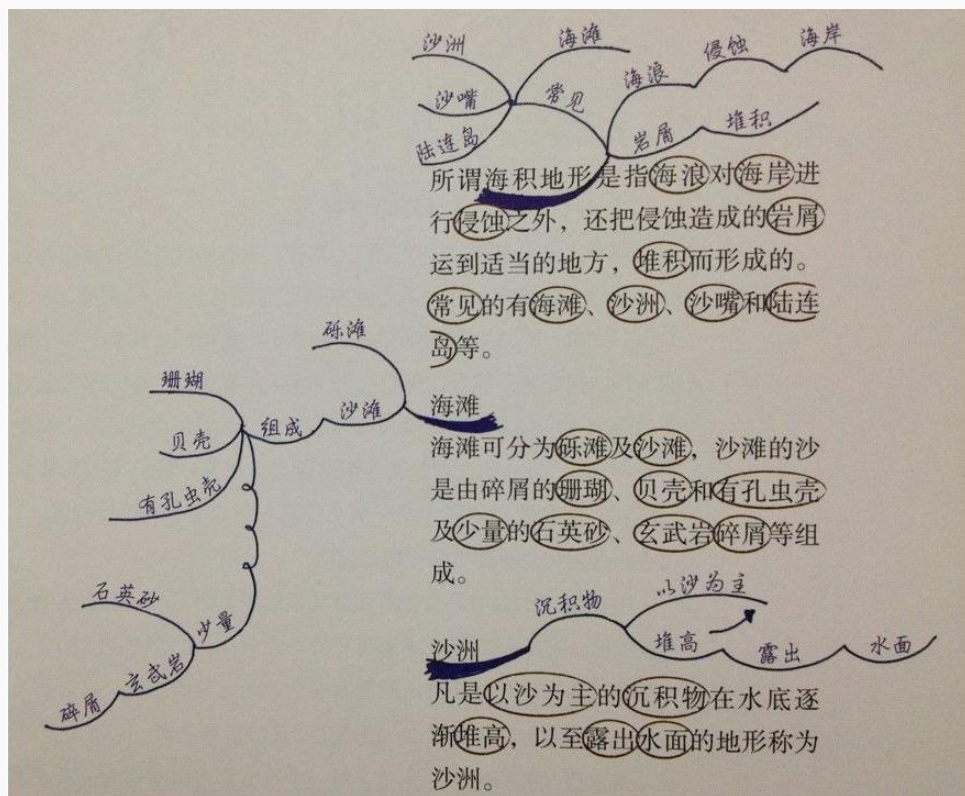 沙洲
海滩
侵蚀
海岸
海浪
沙嘴
常见
陆连岛
岩屑
堆积
所谓海积地形是指海浪对海岸进
行侵蚀之外，还把侵蚀造成的岩屑
运到适当的地方，堆积而形成的。
常见的有海滩、沙洲、沙嘴和陆连
岛等。
砾滩
珊瑚
贝壳
组成
沙滩
有孔虫壳
海滩
海滩可分为砾滩及沙滩，沙滩的沙
是由碎屑的珊瑚、贝壳和有孔虫壳
及少量的石英砂、玄武岩碎屑等组
成。
石英砂
少量
玄武岩
碎屑
沉积物
以沙为主
堆高
露出
水面
沙洲
凡是以沙为主的沉积物在水底逐
渐堆高，以至露出水面的地形称为
沙洲。